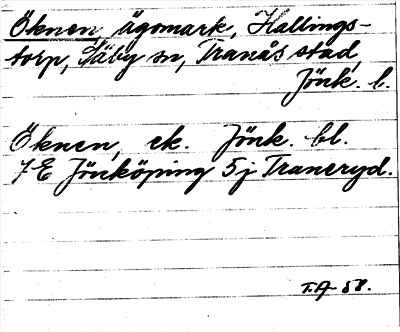 Öknen, ägomark, Hallings-
torp, Säby sn, Tranås stad,
Jönk. l.
Öknen, ek. Jönk. bl.
7E Jönköping 5j Traneryd.
T.A. 58.